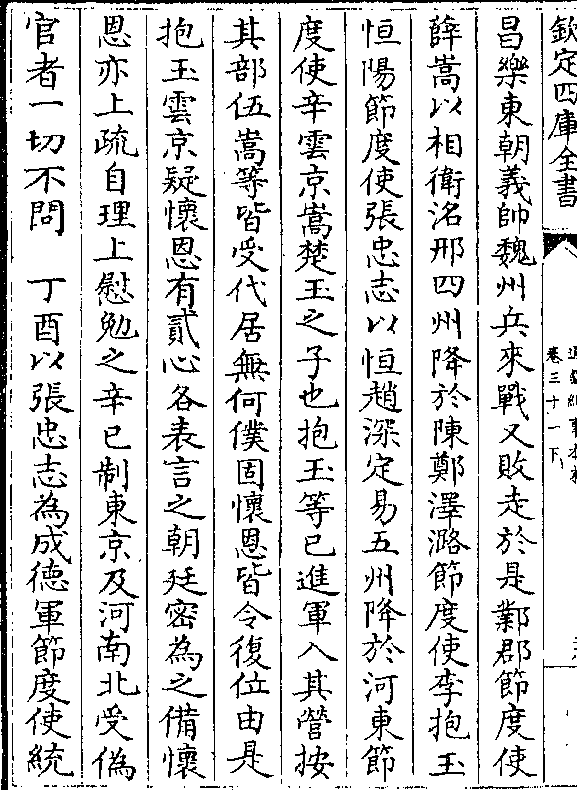 欽定四庫全書
卷三十一下
昌樂東朝義帥魏州兵來戰又敗走於是鄴郡節度使
薛嵩以相衛洺邢四州降於陳鄭澤潞節度使李抱玉
恒陽節度使張忠志以恒趙深定易五州降於河東節
度使辛雲京嵩楚玉之子也抱玉等已進軍入其營按
其部伍嵩等皆受代居無何僕固懷恩皆令復位由是
抱玉雲京疑懷恩有貳心各表言之朝廷密為之備懷
恩亦上疏自理上慰勉之辛巳制東京及河南北受偽
官者一切不問　丁酉以張忠志為成德軍節度使統